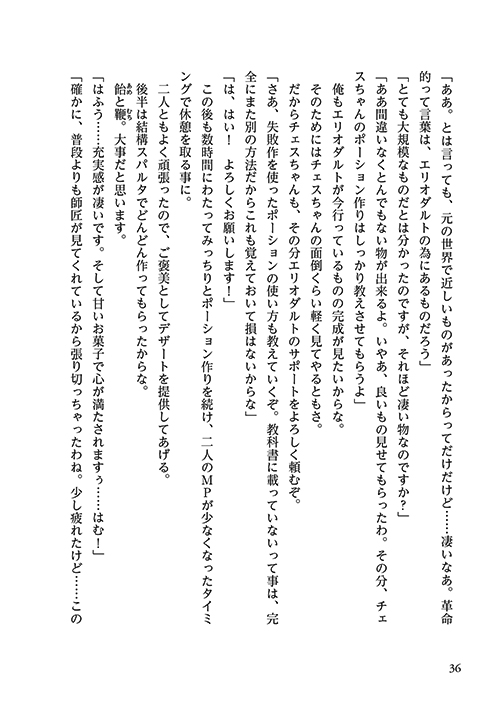 「ああ。とは言っても、元の世界で近しいものがあったからってだけだけど……凄いなあ。革命
的って言葉は、エリオダルトの為にあるものだろう」
「とても大規模なものだとは分かったのですが、それほど凄い物なのですか？」
「ああ間違いなくとんでもない物が出来るよ。いやあ、良いもの見せてもらったわ。その分、チェ
スちゃんのポーション作りはしっかり教えさせてもらうよ」
俺もエリオダルトが今行っているものの完成が見たいからな。
そのためにはチェスちゃんの面倒くらい軽く見てやるともさ。
だからチェスちゃんも、その分エリオダルトのサポートをよろしく頼むぞ。
「さあ、失敗作を使ったポーションの使い方も教えていくぞ。教科書に載っていないって事は、完
全にまた別の方法だからこれも覚えておいて損はないからな」
「は、はい！　よろしくお願いします！」
この後も数時間にわたってみっちりとポーション作りを続け、二人のＭＰが少なくなったタイミ
ングで休憩を取る事に。
二人ともよく頑張ったので、ご褒美としてデザートを提供してあげる。
後半は結構スパルタでどんどん作ってもらったからな。
飴と鞭。大事だと思います。
あめ　むち
「はふう……充実感が凄いです。そして甘いお菓子で心が満たされますぅ……はむ！」
「確かに、普段よりも師匠が見てくれているから張り切っちゃったわね。少し疲れたけど……この
36